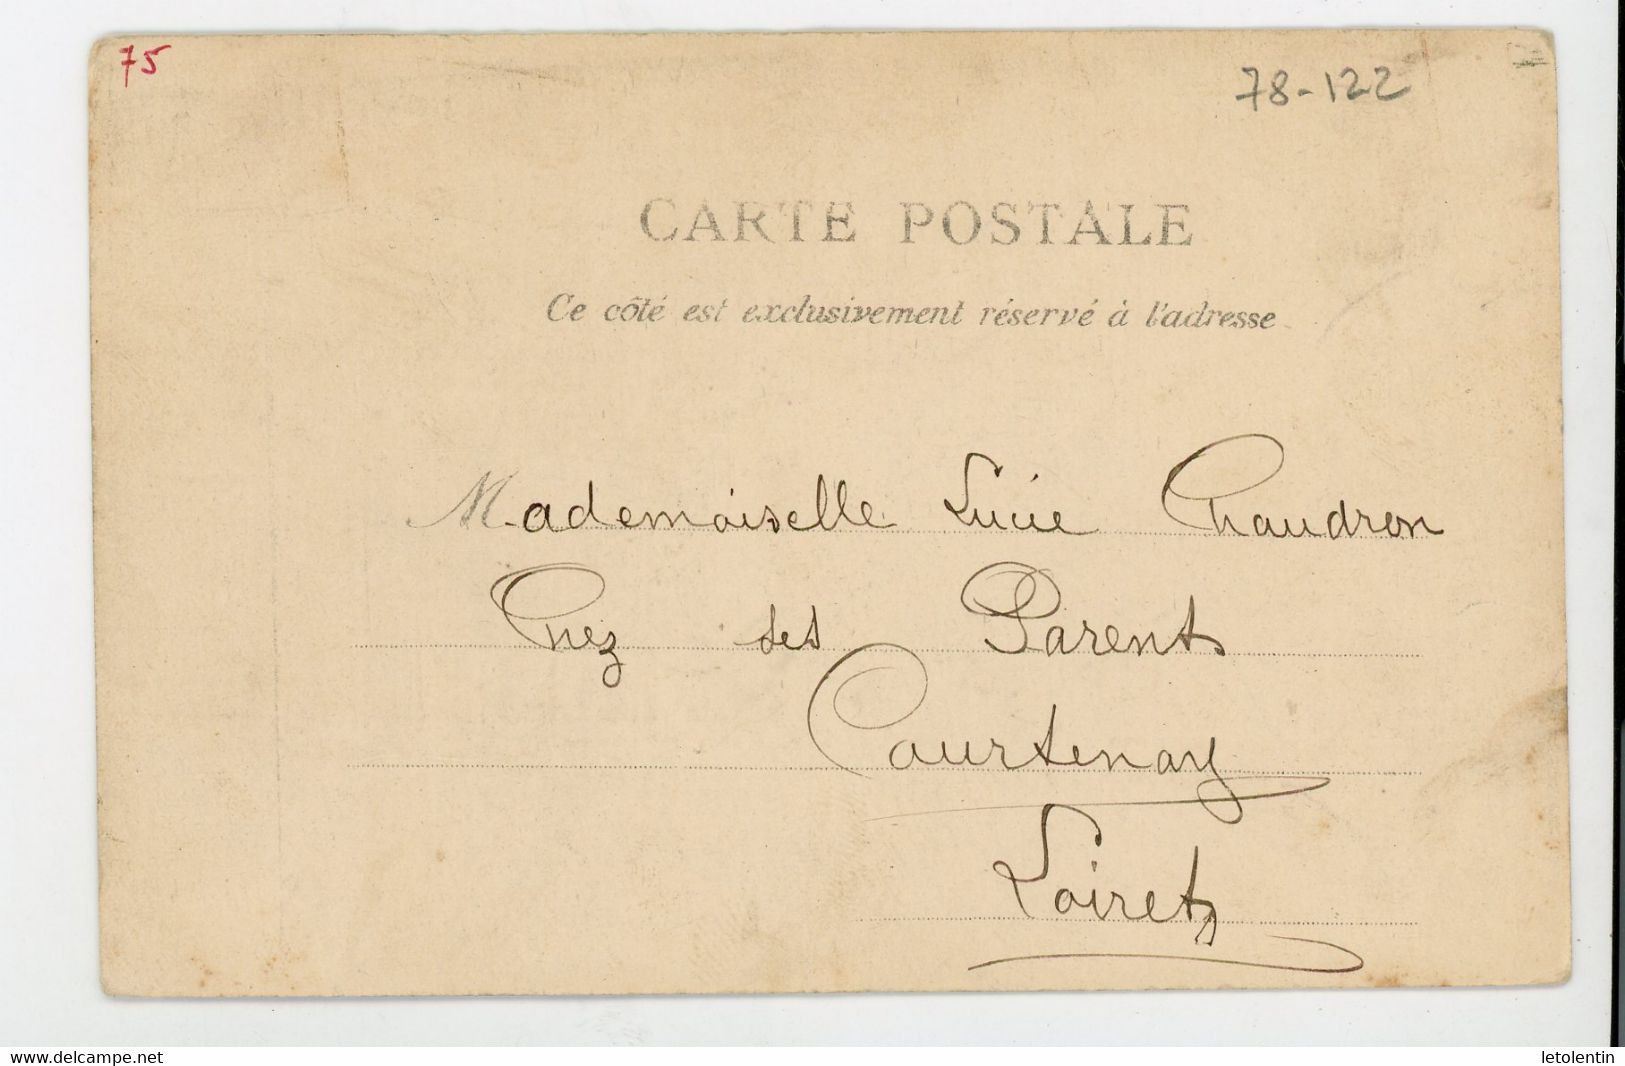 75
78-122
CARTE POSTALE
Ce côté est exclusivement réservé à l'adresse
Mademoiselle Lucie Chaudron
Chez ses Parents
Courtenay
Loiret
www.delcampe.net
letolentin